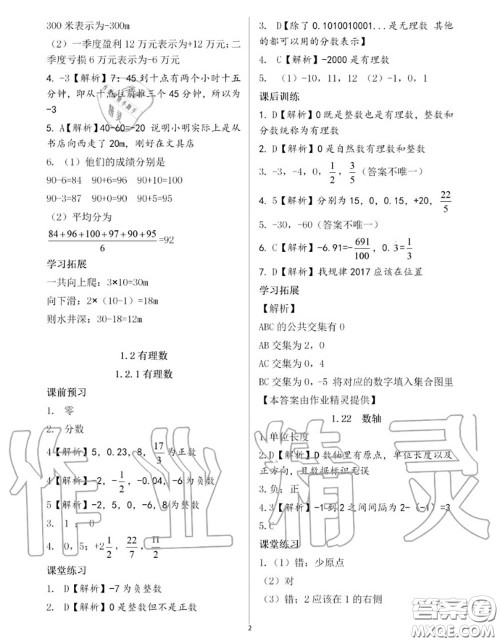 300 米表示为-300m
（2）一季度盈利 12 万元表示为+12 万元;二
季度亏损 6 万元表示为-6 万元
4. -3【解析】7：45 到十点有两个小时十五
分钟，即从十点往前推三个 45 分钟，所以为
-3
5. A【解析】40-60=-20 说明小明实际上是从
书店向西走了 20m，刚好在文具店
6. （1）他们的成绩分别是
90-6=84 90+6=96 90+10=100
90-3=87 90+0=90 90+5=95
（2）平均分为
(84+96+100+97+90+95)/6=92
学习拓展
一共向上爬：3×10=30m
向下滑：2×（10-1）=18m
则水井深：30-18=12m
1.2 有理数
1.2.1 有理数
课前预习
1. 零
2. 分数
4【解析】5，0.23，8，17/3 为正数
4【解析】-2，-1/2，-0.04，-6 为负数
5【解析】-2，5，0，-6，8 为整数
3. 1； 0
4. 0，5；+2 1/2，22/7，11/2
课堂练习
1. D【解析】-7 为负整数
2. D【解析】0 是整数但不是正数
3. D【解析】除了 0.1010010001...是无理数 其他
的都可以用的分数表示】
4. C【解析】-2000 是有理数
5. （1）-10，11，12 （2）-1，0，1
课后训练
1. D【解析】0 既是整数也是有理数，整数和
分数统称为有理数
2. D【解析】0 是自然数有理数和整数
3. -3，-4，0，1/2，3/5（答案不唯一）
4. 5【解析】分别为 15，0，0.15，+20，22/5
5. -30，-60（答案不唯一）
6. C【解析】-6.91=-691/100，0.3=1/3
7. D【解析】找规律 2017 应该在位置
学习拓展
【解析】
ABC 的公共交集有 0
AB 交集为 2，0
AC 交集为 0，4
BC 交集为 0，-5 将对应的数字填入集合图里
【本答案由作业精灵提供】
1.22 数轴
1.单位长度
2.D【解析】D 数轴里有原点，单位长度以及
正方向，且数据标识无误
3.负；正
4.3【解析】-1 到 2 之间间隔为 2-（-1）=3
5.C
课堂练习
1.（1）错；少原点
（2）对
（3）错；2 应该在 1 的右侧
2
作业精灵
答案圈
MXQE.COM